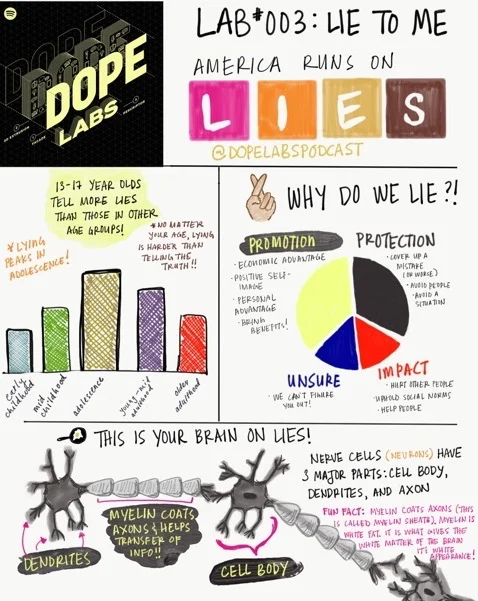 DOPE
LABS
LAB #003: LIE TO ME
AMERICA RUNS ON
LIES
@DOPELABSPODCAST
13-17 YEAR OLDS
TELL MORE LIES
THAN THOSE IN OTHER
AGE GROUPS!
*LYING
PEAKS IN
ADOLESCENCE!
*NO MATTER
YOUR AGE, LYING
IS HARDER THAN
TELLING THE
TRUTH!!
early
childhood
mid
childhood
adolescence
young-mid
adulthood
older
adulthood
WHY DO WE LIE?!
PROMOTION
· ECONOMIC ADVANTAGE
· POSITIVE SELF-
IMAGE
· PERSONAL
ADVANTAGE
· BRING
BENEFITS!
PROTECTION
· COVER UP A
MISTAKE
(OR WORSE)
· AVOID PEOPLE
· AVOID A
SITUATION
UNSURE
· WE CAN'T FIGURE
YOU OUT!
IMPACT
· HURT OTHER PEOPLE
· UPHOLD SOCIAL NORMS
· HELP PEOPLE
THIS IS YOUR BRAIN ON LIES!
NERVE CELLS (NEURONS) HAVE
3 MAJOR PARTS: CELL BODY,
DENDRITES, AND AXON
FUN FACT: MYELIN COATS AXONS (THIS
IS CALLED MYELIN SHEATH). MYELIN IS
WHITE FAT. IT IS WHAT GIVES THE
WHITE MATTER OF THE BRAIN
ITS WHITE
APPEARANCE!
MYELIN COATS
AXONS & HELPS
TRANSFER OF
INFO!!
DENDRITES
CELL BODY